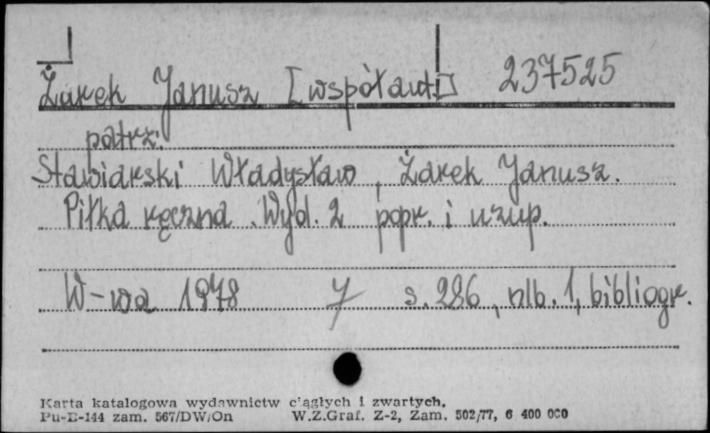 Żarek Janusz [współaut.] 237525
patrz:
Stawiarski Władysław, Żarek Janusz.
Piłka ręczna. Wyd. 2 popr. i uzup.
W-wa 1978 7 s. 286, nlb. 1, bibliogr.
Karta katalogowa wydawnictw ciągłych i zwartych.
Pu-D-144 zam. 567/DW/On W.Z.Graf. Z-2, Zam. 502/77, 6 400 000